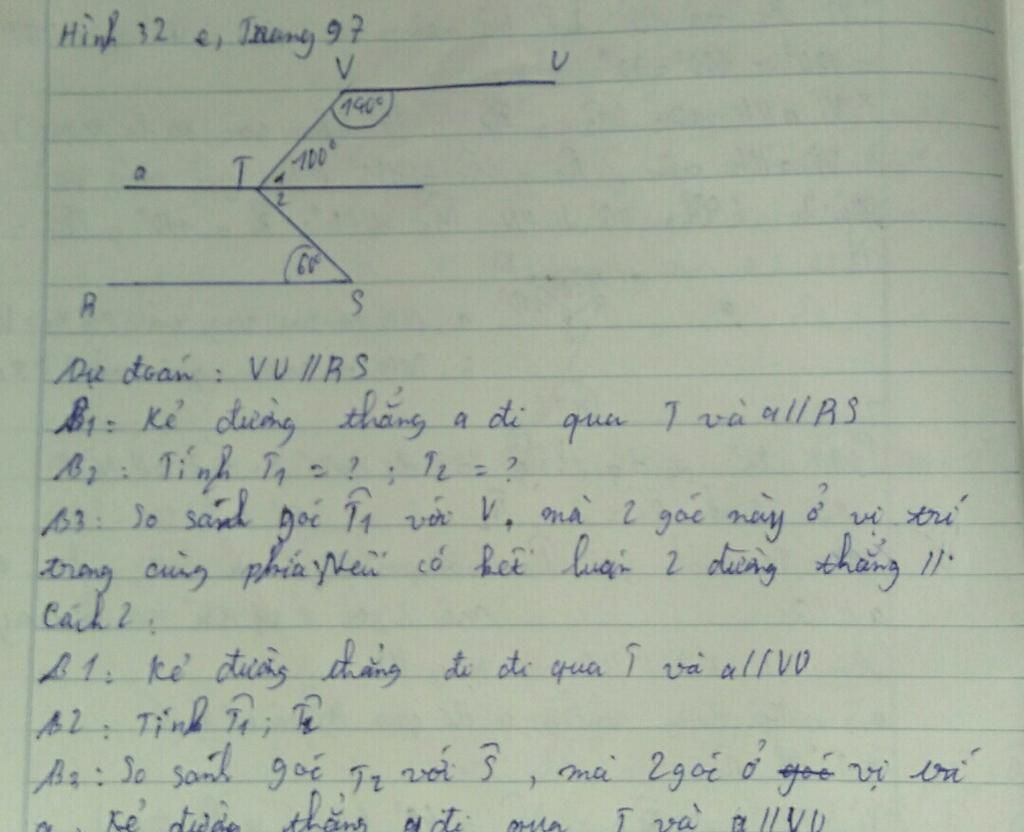 Hình 32 e, Trang 97
V U
140°
100°
a T 1
2
60°
R S
Dự đoán : VU // RS
B1: Kẻ đường thẳng a đi qua T và a // RS
B2 : Tính T1 = ? ; T2 = ?
B3: So sánh góc T̂1 với V, mà 2 góc này ở vị trí
trong cùng phía, Nếu có kết luận 2 đường thẳng //.
Cách 2 :
B1: Kẻ đường thẳng đi đi qua T và a // VU
B2: Tính T̂1 ; T̂2
B3: So sánh góc T2 với Ŝ, mà 2 góc ở góc vị trí
Kẻ đường thẳng a đi qua T và a // VU